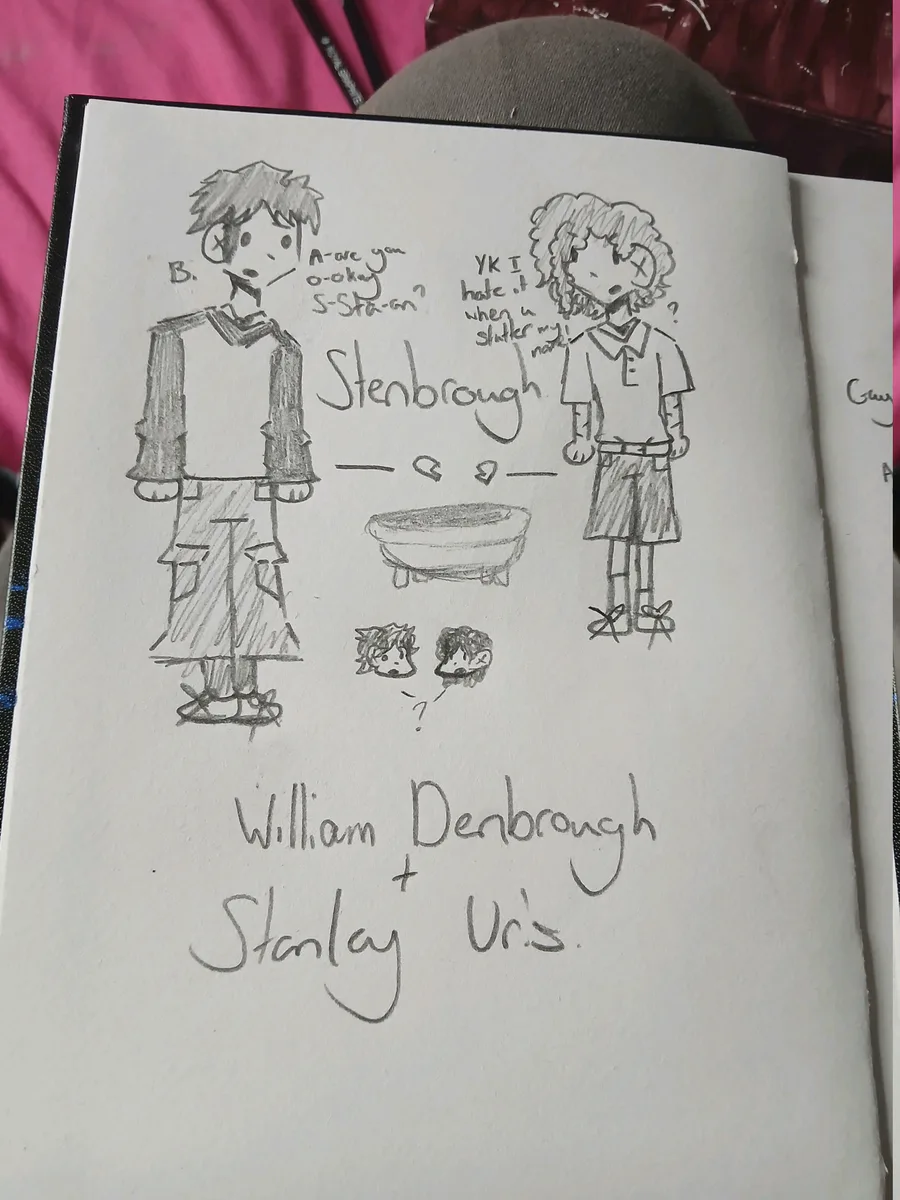 B.
A-are you
o-okay
S-Sta-an?
YK I
hate it
when u
stutter my
name!
?
Stenbrough
?
William Denbrough
+
Stanley Uris.